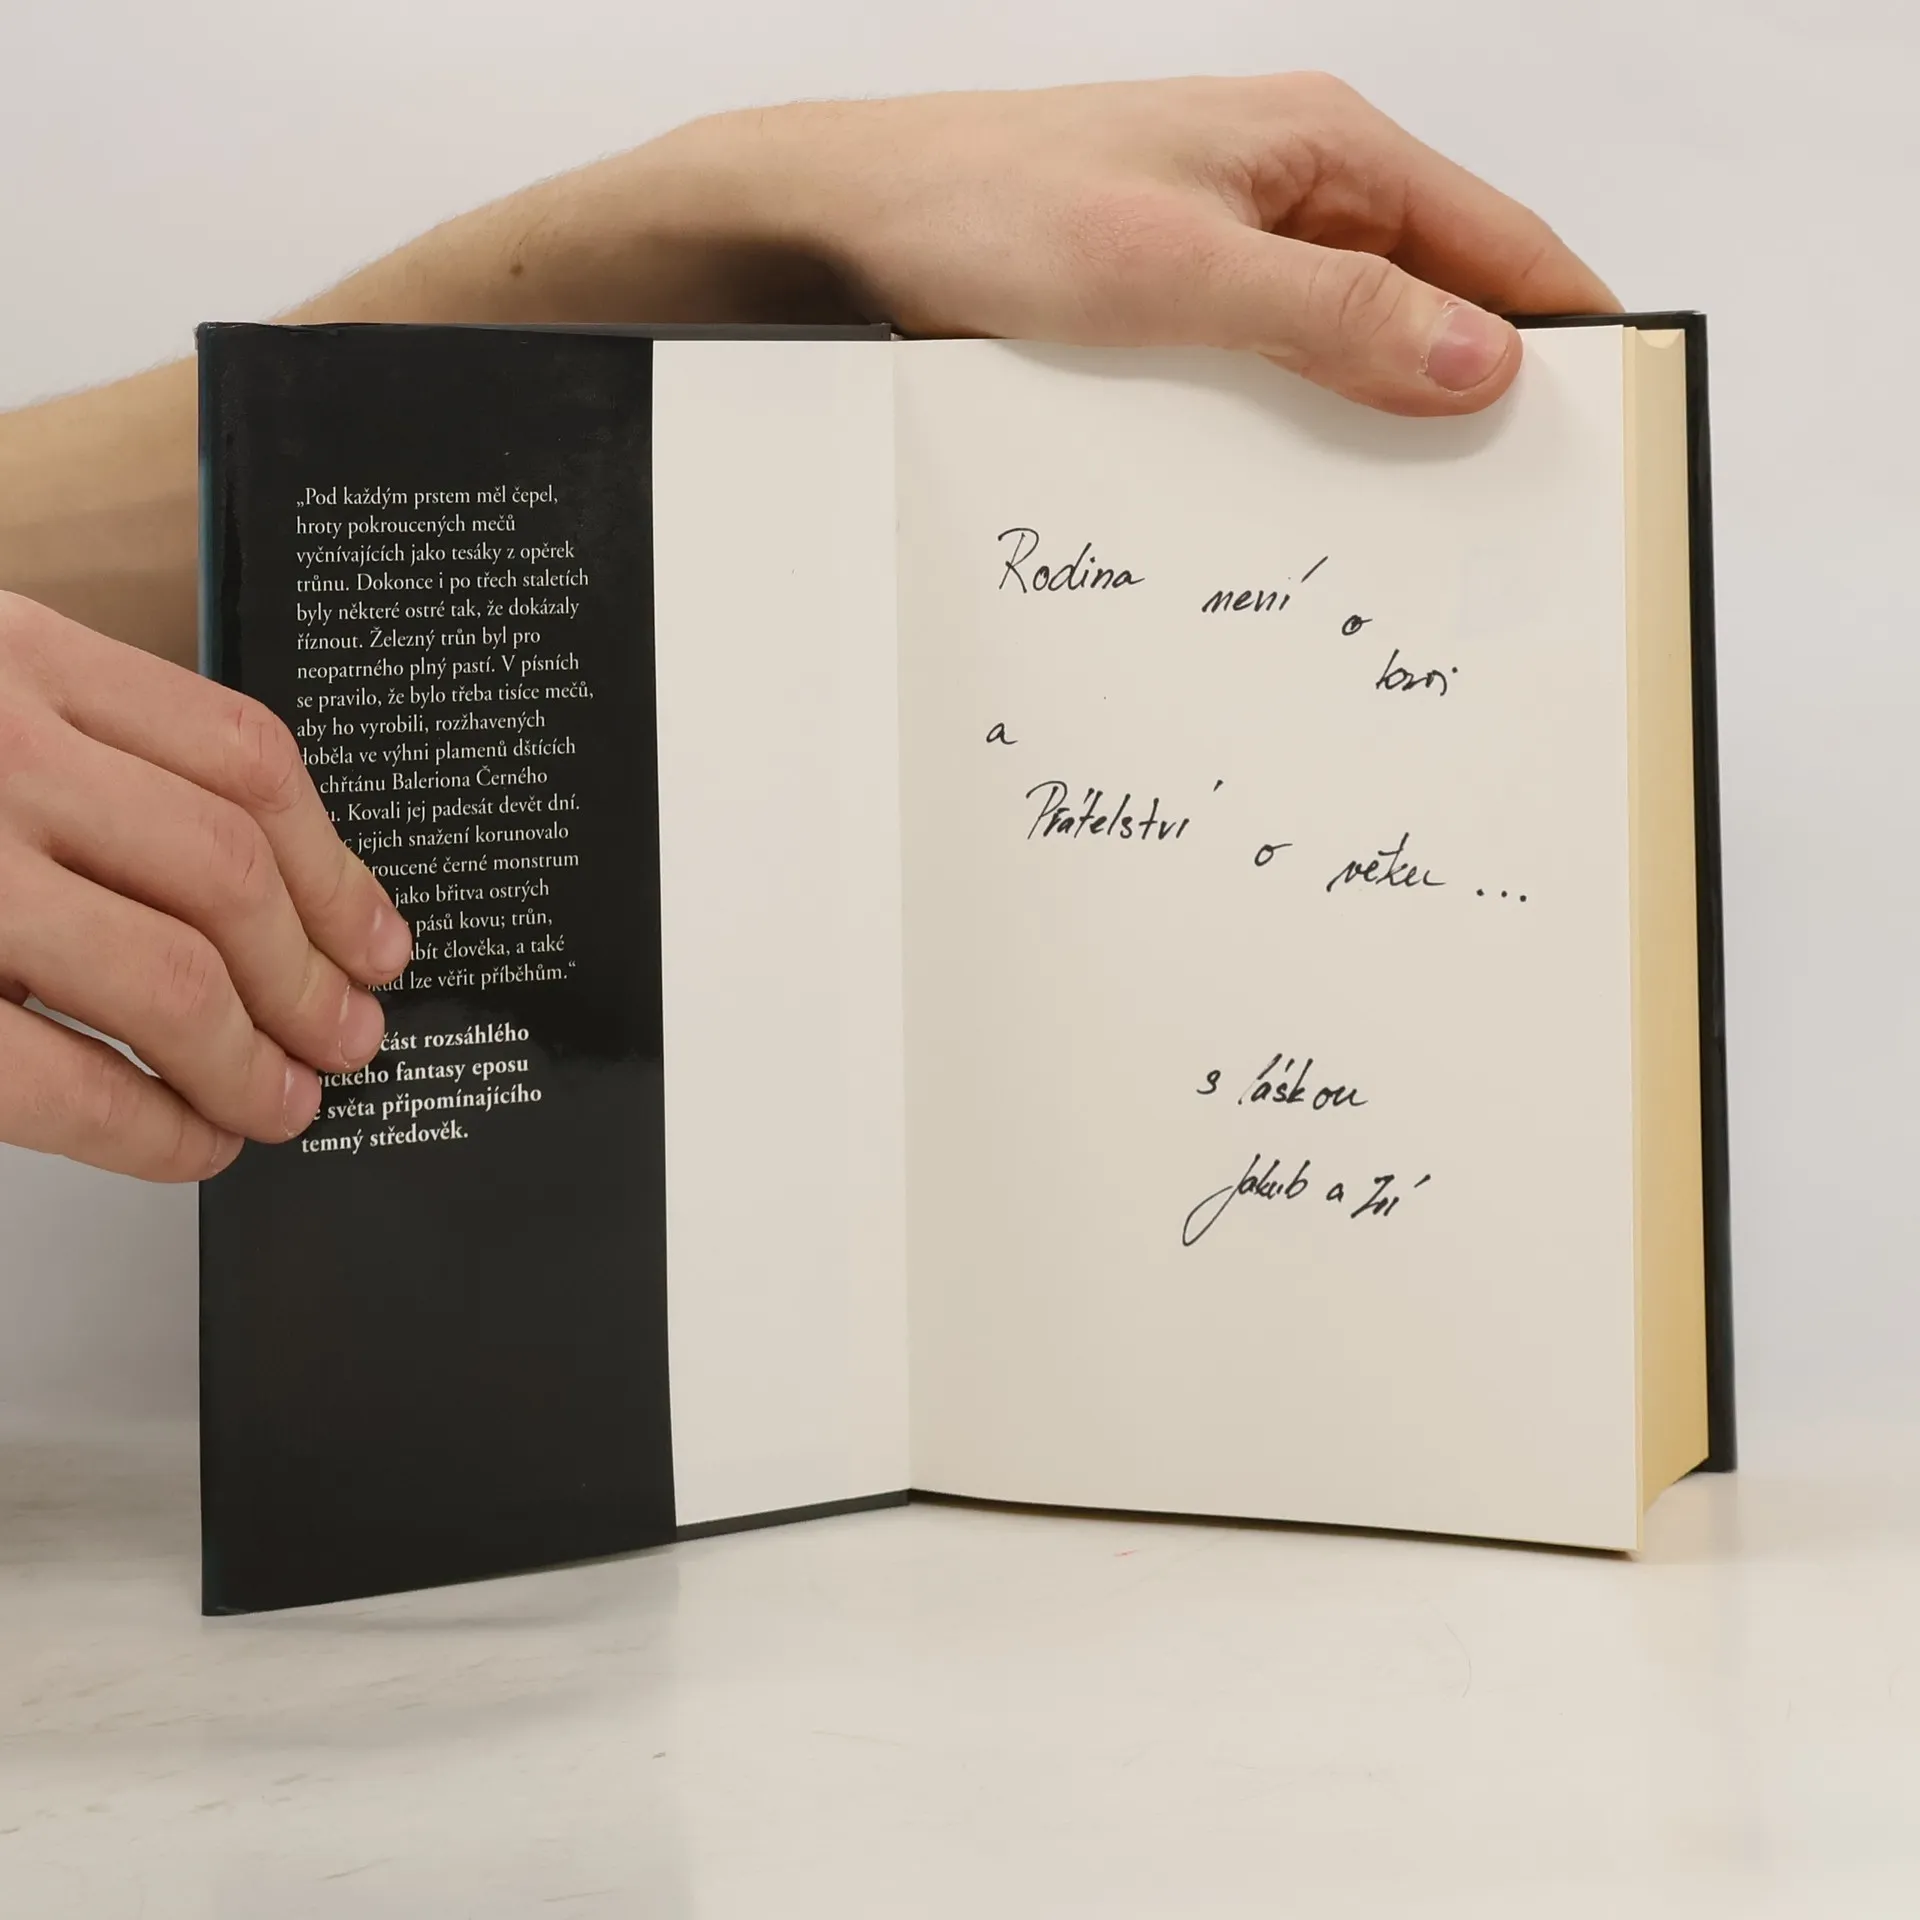 „Pod každým prstem měl čepel,
hroty pokroucených mečů
vyčnívajících jako tesáky z opěrek
trůnu. Dokonce i po třech staletích
byly některé ostré tak, že dokázaly
říznout. Železný trůn byl pro
neopatrného plný pastí. V písních
se pravilo, že bylo třeba tisíce mečů,
aby ho vyrobili, rozžhavených
doběla ve výhni plamenů dštících
chřtánu Baleriona Černého
Kovali jej padesát devět dní.
jejich snažení korunovalo
černé monstrum
jako břitva ostrých
pásů kovu; trůn,
člověka, a také
lze věřit příběhům.“
část rozsáhlého
fantasy eposu
světa připomínajícího
temný středověk.
Rodina není o
krvi
a
Přátelství o věku ...
s láskou
Jakub a